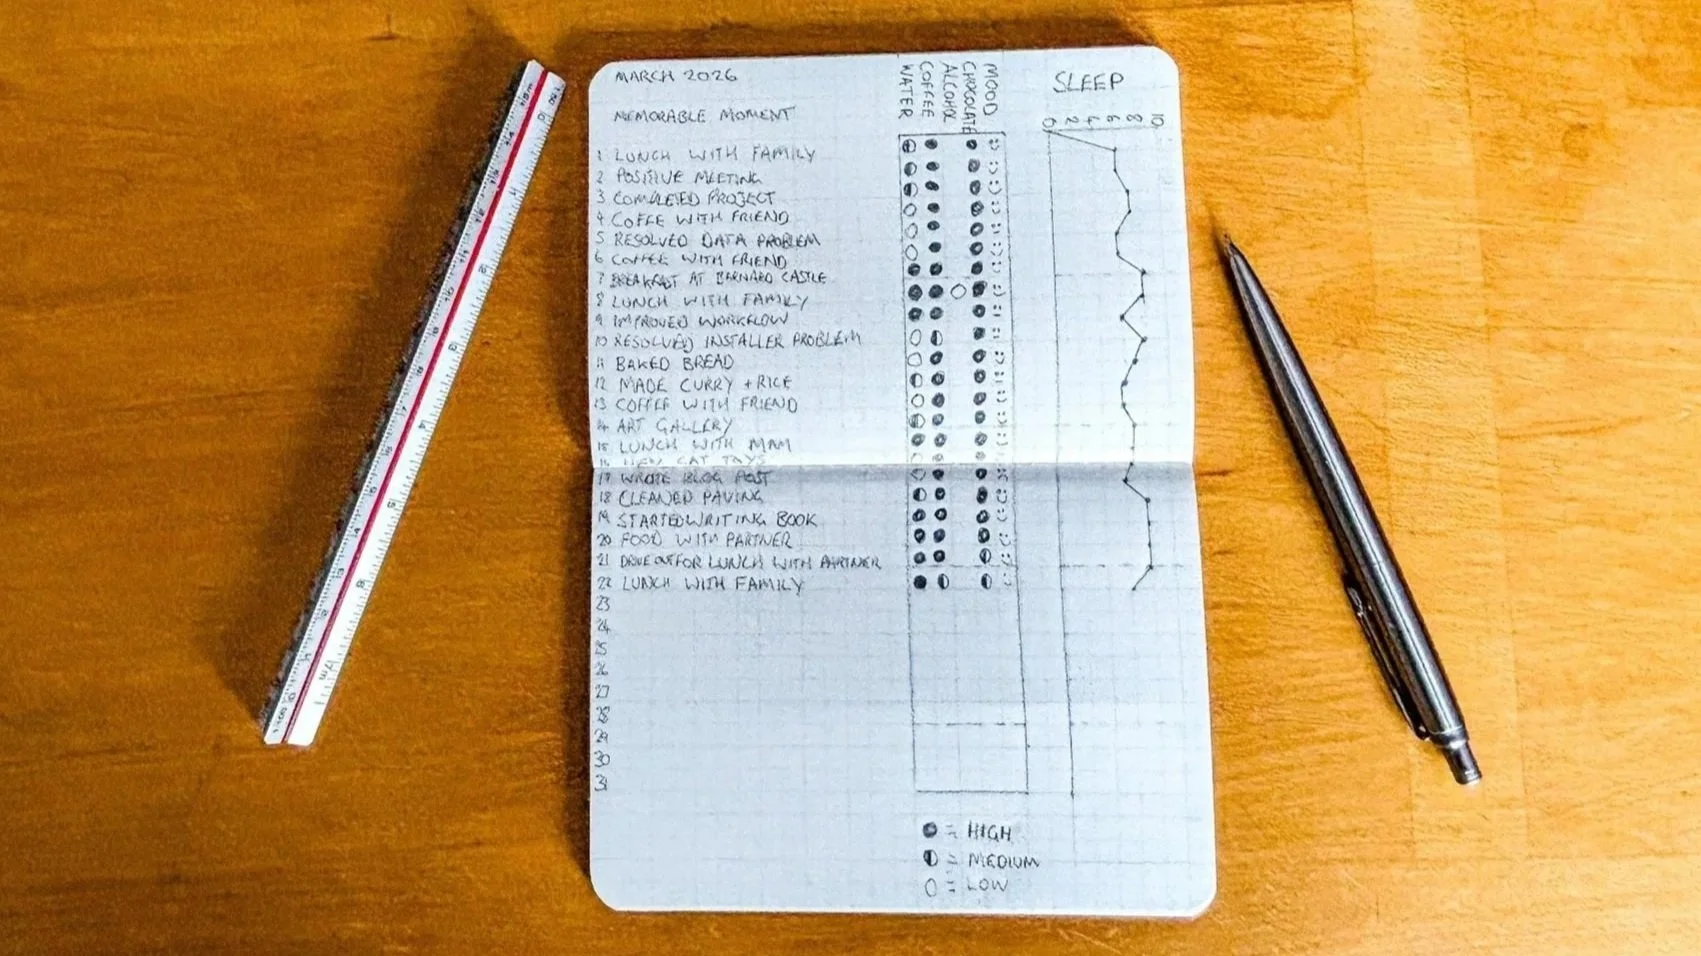 MARCH 2026
MEMORABLE MOMENT
WATER
COFFEE
ALCOHOL
CHOCOLATE
MOOD
SLEEP
0 2 4 6 8 10
1 LUNCH WITH FAMILY
2 POSITIVE MEETING
3 COMPLETED PROJECT
4 COFFE WITH FRIEND
5 RESOLVED DATA PROBLEM
6 COFFEE WITH FRIEND
7 BREAKFAST AT BARNARD CASTLE
8 LUNCH WITH FAMILY
9 IMPROVED WORKFLOW
10 RESOLVED INSTALLER PROBLEM
11 BAKED BREAD
12 MADE CURRY + RICE
13 COFFEE WITH FRIEND
14 ART GALLERY
15 LUNCH WITH MAM
16 NEW CAT TOYS
17 WROTE BLOG POST
18 CLEANED PAVING
19 STARTED WRITING BOOK
20 FOOD WITH PARTNER
21 DRIVE OUT FOR LUNCH WITH PARTNER
22 LUNCH WITH FAMILY
23
24
25
26
27
28
29
30
31
= HIGH
= MEDIUM
= LOW